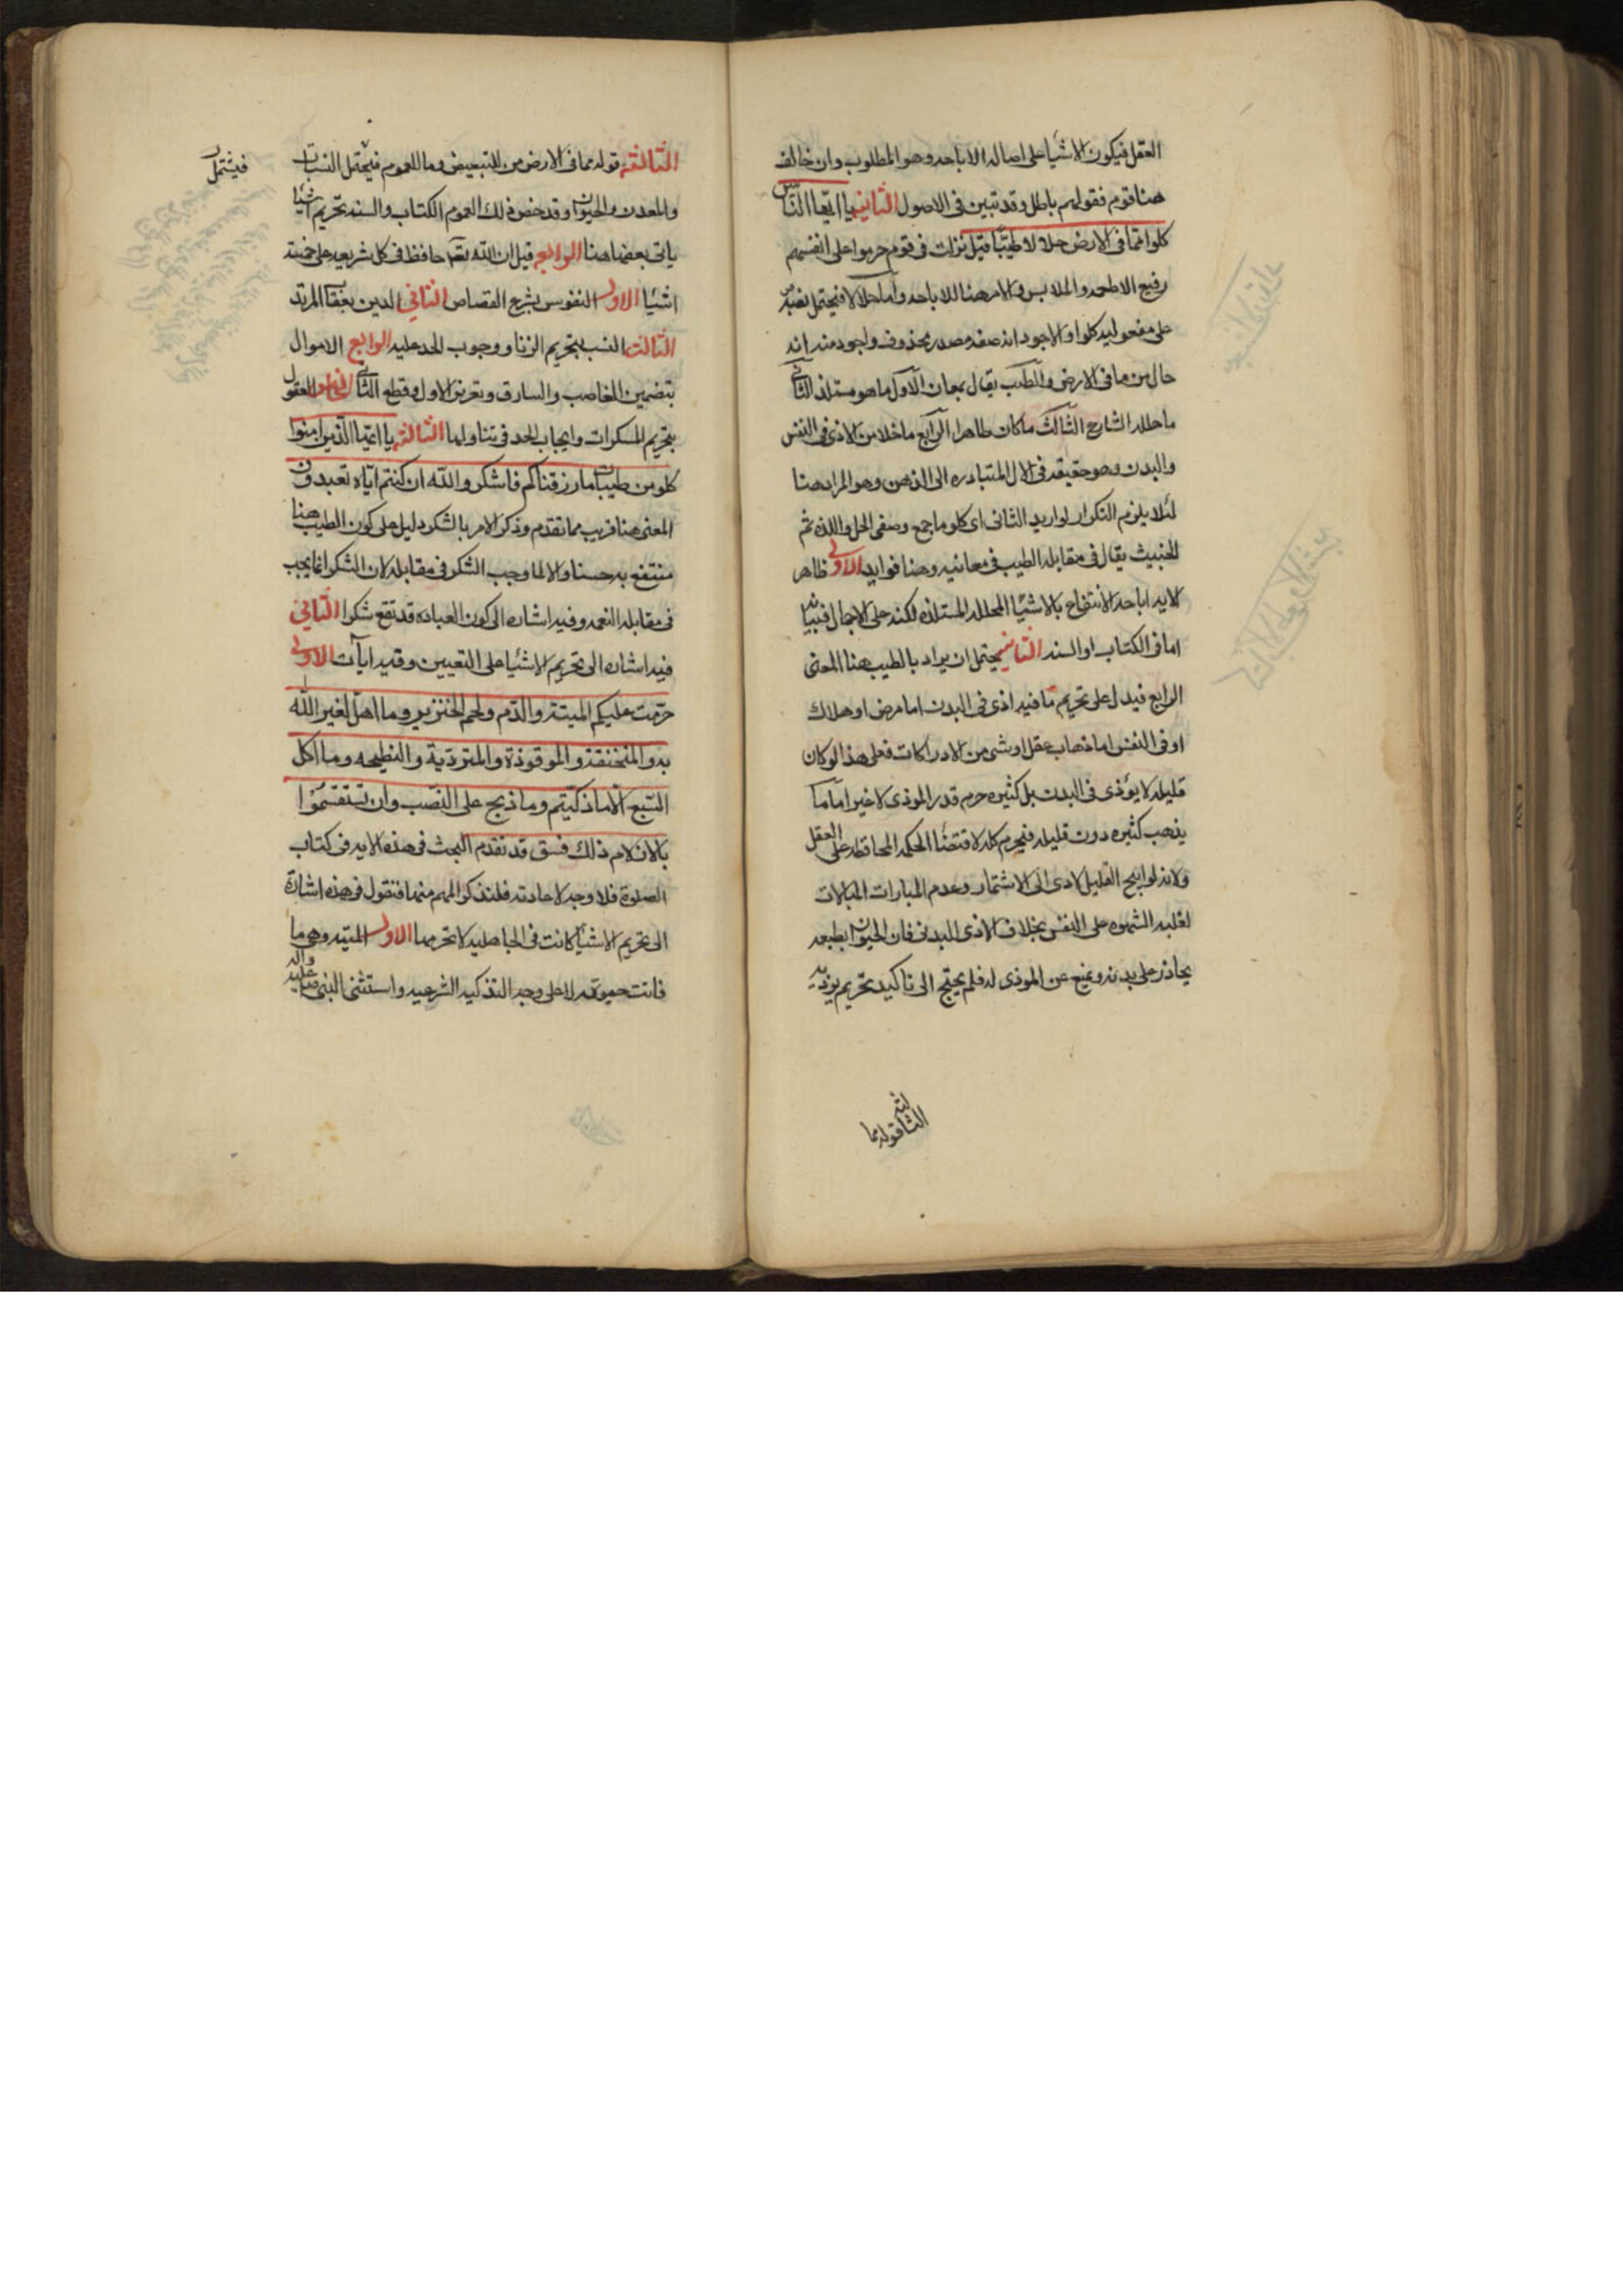 العقل فيكون الاشيا على اصاله الاباحه وهو المطلوب وان خالف
هنا قوم فقولهم باطل وقد تبين فى الاصول الثانيه يا ايها الناس
كلوا مما فى الارض حلالا طيبا قيل نزلت فى قوم حرموا على انفسهم
رفيع الاطعمه والملابس والامر هنا للاباحه واما حلالا فيحتمل نصبه
على مفعوليه كلوا والاجود انه صفه مصدر محذوف واجود منه انه
حال من ما فى الارض والطيب يقال بمعان الاول ما هو مستلذ الثانى
ما حلله الشارع الثالث ما كان طاهرا الرابع ما خلا من الاذى فى النفس
والبدن وهو حقيقه فى الاول لتبادره الى الذهن وهو المراد هنا
لئلا يلزم التكرار لو اريد الثانى اى كلوا ما جمع وصفى الحل واللذه ثم
الخبيث يقال فى مقابله الطيب فى معانيه وهنا فوايد الاولى ظاهر
الايه اباحه الانتفاع بالاشيا المحلله المستلذه لكنه على الاجمال فبيانه
اما فى الكتاب او السنه الثانيه يحتمل ان يراد بالطيب هنا المعنى
الرابع فيدل على تحريم ما فيه اذى فى البدن اما مرض او هلاك
او فى النفس اما ذهاب عقل او شى من الادراكات فعلى هذا لو كان
قليله لا يؤذى فى البدن بل كثيره حرم قدر الموذى لا غير اما ما
يذهب كثيره دون قليله فيحرم كله لاقتضا الحكمه المحافظه على العقل
ولانه لو ابيح القليل لادى الى الاشتهار وعدم المبارات المبالات
لغلبه الشهوه على النفس بخلاف الاذى البدنى فان الحيوان بطبعه
يحاذر على بدنه ويمنع عن الموذى له فلم يحتج الى تاكيد تحريم يوذيه
الثالثه قوله مما
الثالثه قوله مما فى الارض من للتبعيض وما للعموم فيحتمل النبات
فيشتمل
والمعدن والحيوان وقد خص ذلك العموم الكتاب والسنه تحريم اشيا
ياتى بعضها هنا الرابعه قيل ان الله تعه حافظ فى كل شريعه على خمسه
اشيا الاول النفوس بشرع القصاص الثانى الدين بقتل المرتد
الثالث النسب بتحريم الزنا ووجوب الحد عليه الرابع الاموال
بتضمين الغاصب والسارق وتعزير الاول وقطع الثانى الخامس العقول
بتحريم المسكرات وايجاب الحد فى تناولها الثالثه يا ايها الذين امنوا
كلو من طيبات ما رزقناكم فاشكروا الله ان كنتم اياه تعبدون
المعنى هنا قريب مما تقدم وذكر الامر بالشكر دليل على كون الطيب هنا
منتفع به حسنا والا لما وجب الشكر فى مقابله لان الشكر انما يجب
فى مقابله النعمه وفيه اشاره الى كون العباده قد تقع شكرا الثانى
فيه اشاره الى تحريم الاشيا على التعيين وفيه ايات الاولى
حرمت عليكم الميتة والدم ولحم الخنزير وما اهل لغير الله
به والمنخنقة والموقوذة والمتردية والنطيحه وما اكل
السبع الا ما ذكيتم وما ذبح على النصب وان تستقسموا
بالازلام ذلك فسق قد تقدم البحث فى هذه الايه فى كتاب
الصلوة فلا وجه لاعادته فلنذكر المهم منها فنقول فى هذه اشارة
الى تحريم الاشيا كانت فى الجاهليه لا تحرمها الاول الميته وهى ما
فاتت حيوته لا على وجه التذكيه الشرعيه واستثنى النبى صا عليه واله